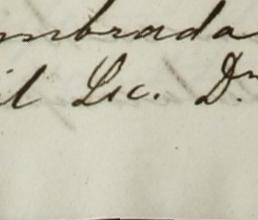 mbrada
il Lic. Dn